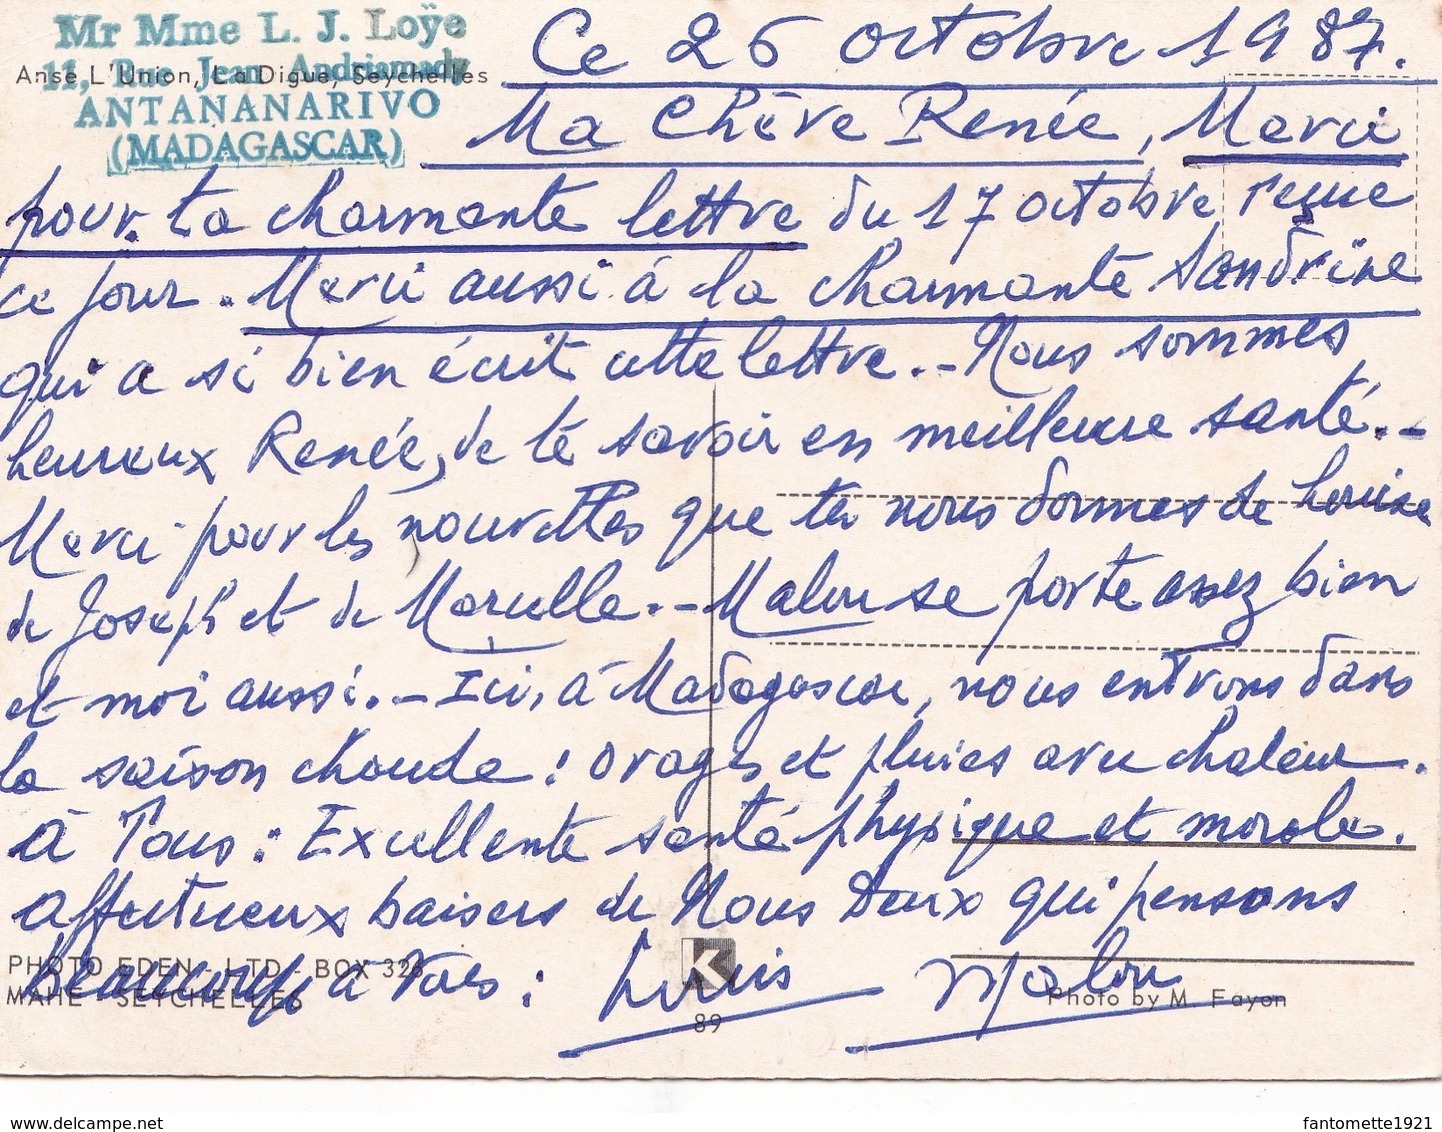 Mr Mme L. J. Loÿe
11, Rue Jean Andriamady
Anse L'Union, La Digue, Seychelles
ANTANANARIVO
(MADAGASCAR)
Ce 26 octobre 1987.
Ma Chère Renée, Merci
pour ta charmante lettre du 17 octobre reçue
ce jour. Merci aussi à la charmante Sandrine
qui a si bien écrit cette lettre. - Nous sommes
heureux Renée, de te savoir en meilleure santé. -
Merci pour les nouvelles que tu nous donnes de Louise
de Joseph et de Marcelle. - Malou se porte assez bien
et moi aussi. - Ici, à Madagascar, nous entrons dans
la saison chaude : orages et pluies avec chaleur.
à Tous : Excellente santé physique et morale.
affectueux baisers de Nous Deux qui pensons
beaucoup à Vous : Louis Malou
PHOTO EDEN - LTD - BOX 326
MAHE SEYCHELLES
K
89
Photo by M. Fayon
www.delcampe.net
fantomette1921